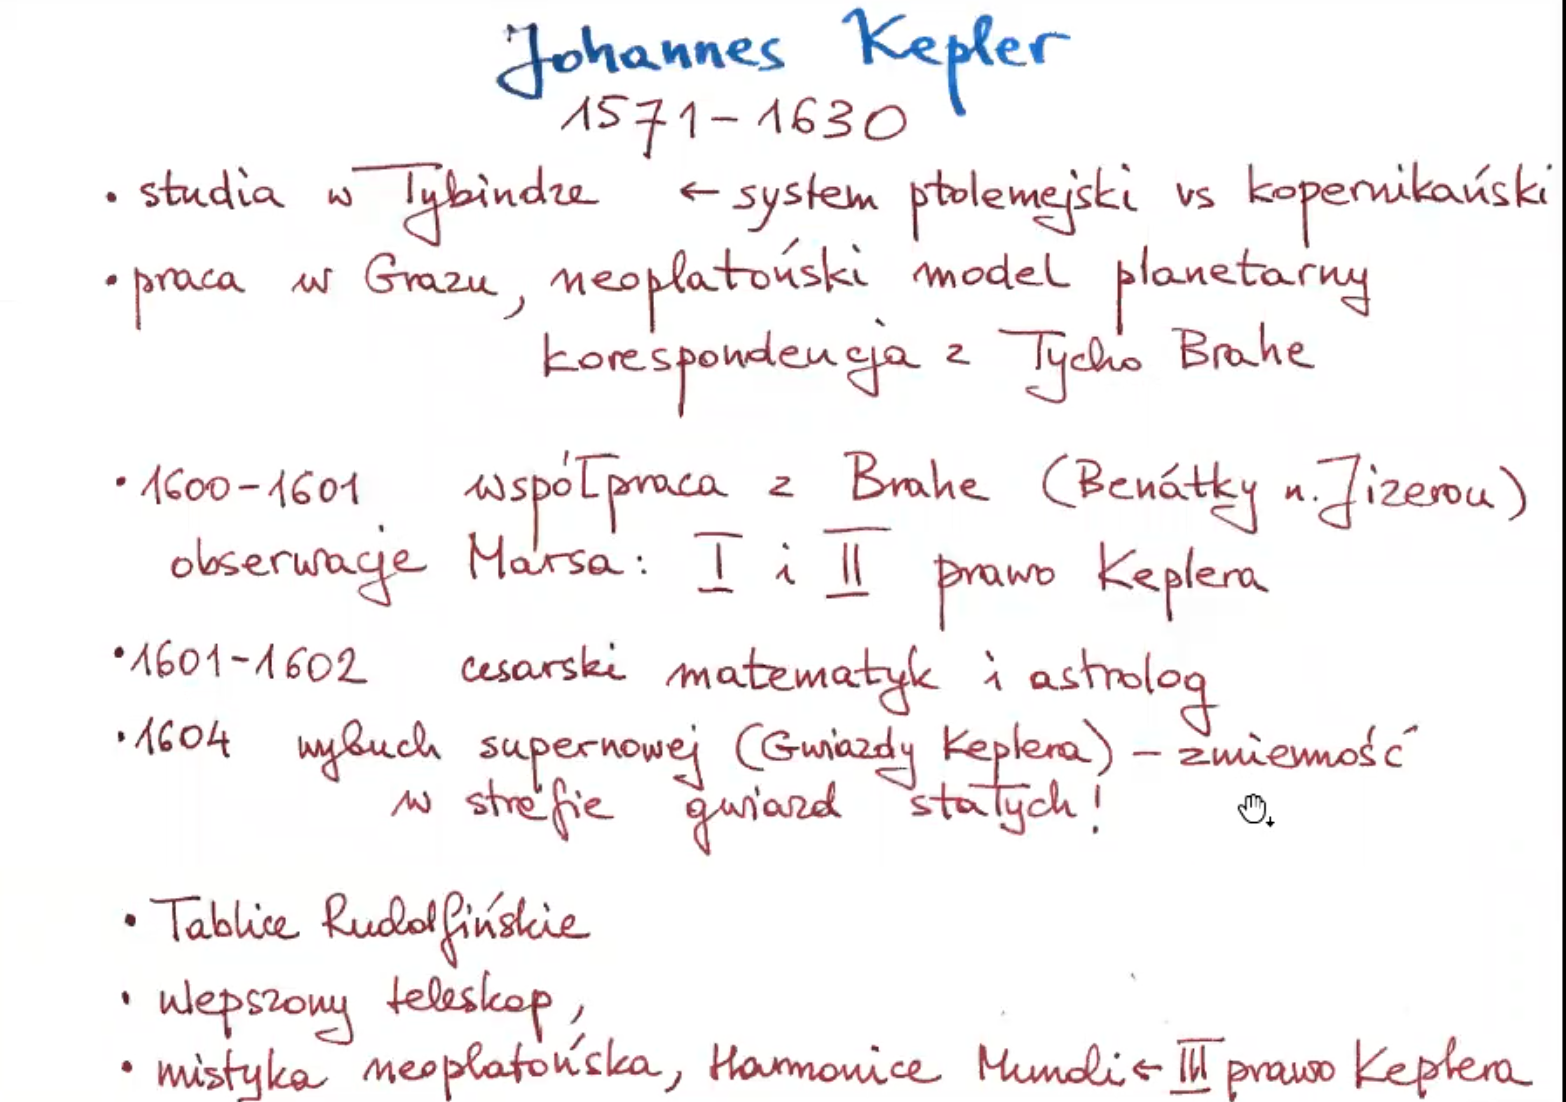 Johannes Kepler
1571-1630
• studia w Tybindze ← system ptolemejski vs kopernikański
• praca w Grazu, neoplatoński model planetarny
korespondencja z Tycho Brahe
• 1600-1601 współpraca z Brahe (Benátky n. Jizerou)
obserwacje Marsa: I i II prawo Keplera
• 1601-1602 cesarski matematyk i astrolog
• 1604 wybuch supernowej (Gwiazdy Keplera) – zmienność
w strefie gwiazd stałych!
• Tablice Rudolfińskie
• ulepszony teleskop,
• mistyka neoplatońska, Harmonice Mundi ← III prawo Keplera